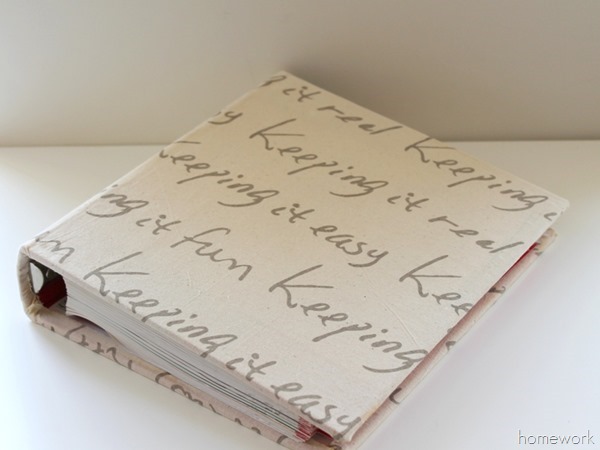 it real Keeping i
y Keeping it real
Keeping it easy Ke
ing it fun Keeping
un Keeping it easy
homework